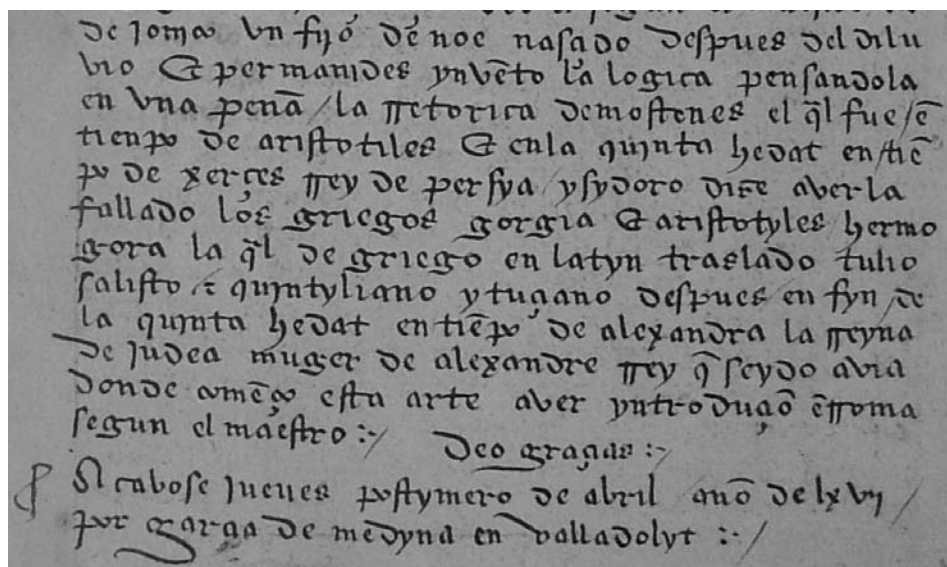 de jomā vn fijo de noe nasçido despues del dilu
vio & permanides ynvēto la logica pensandola
en vna peña / la rretorica demostenes el q̄l fue / ē
tienpo de aristotiles & enla quinta hedat en tiē
po de xerçes rrey de persya / ysydoro dize averla
fallado los griegos gorgia & aristotyles / hermo
gora la q̄l de griego en latyn traslado tulio
salisto / e quintyliano y despues en fyn de
la quinta hedat en tiēpo de alexandra la rreyna
de judea muger de alexandre rrey q̄ seydo avia
donde esta arte aver yntroduçiō ērroma
segun el maestro :~/
deo graçias :~
Acabose jueues postrymero de abril año de lxvij /
por garçia de medyna en valladolyt :~/